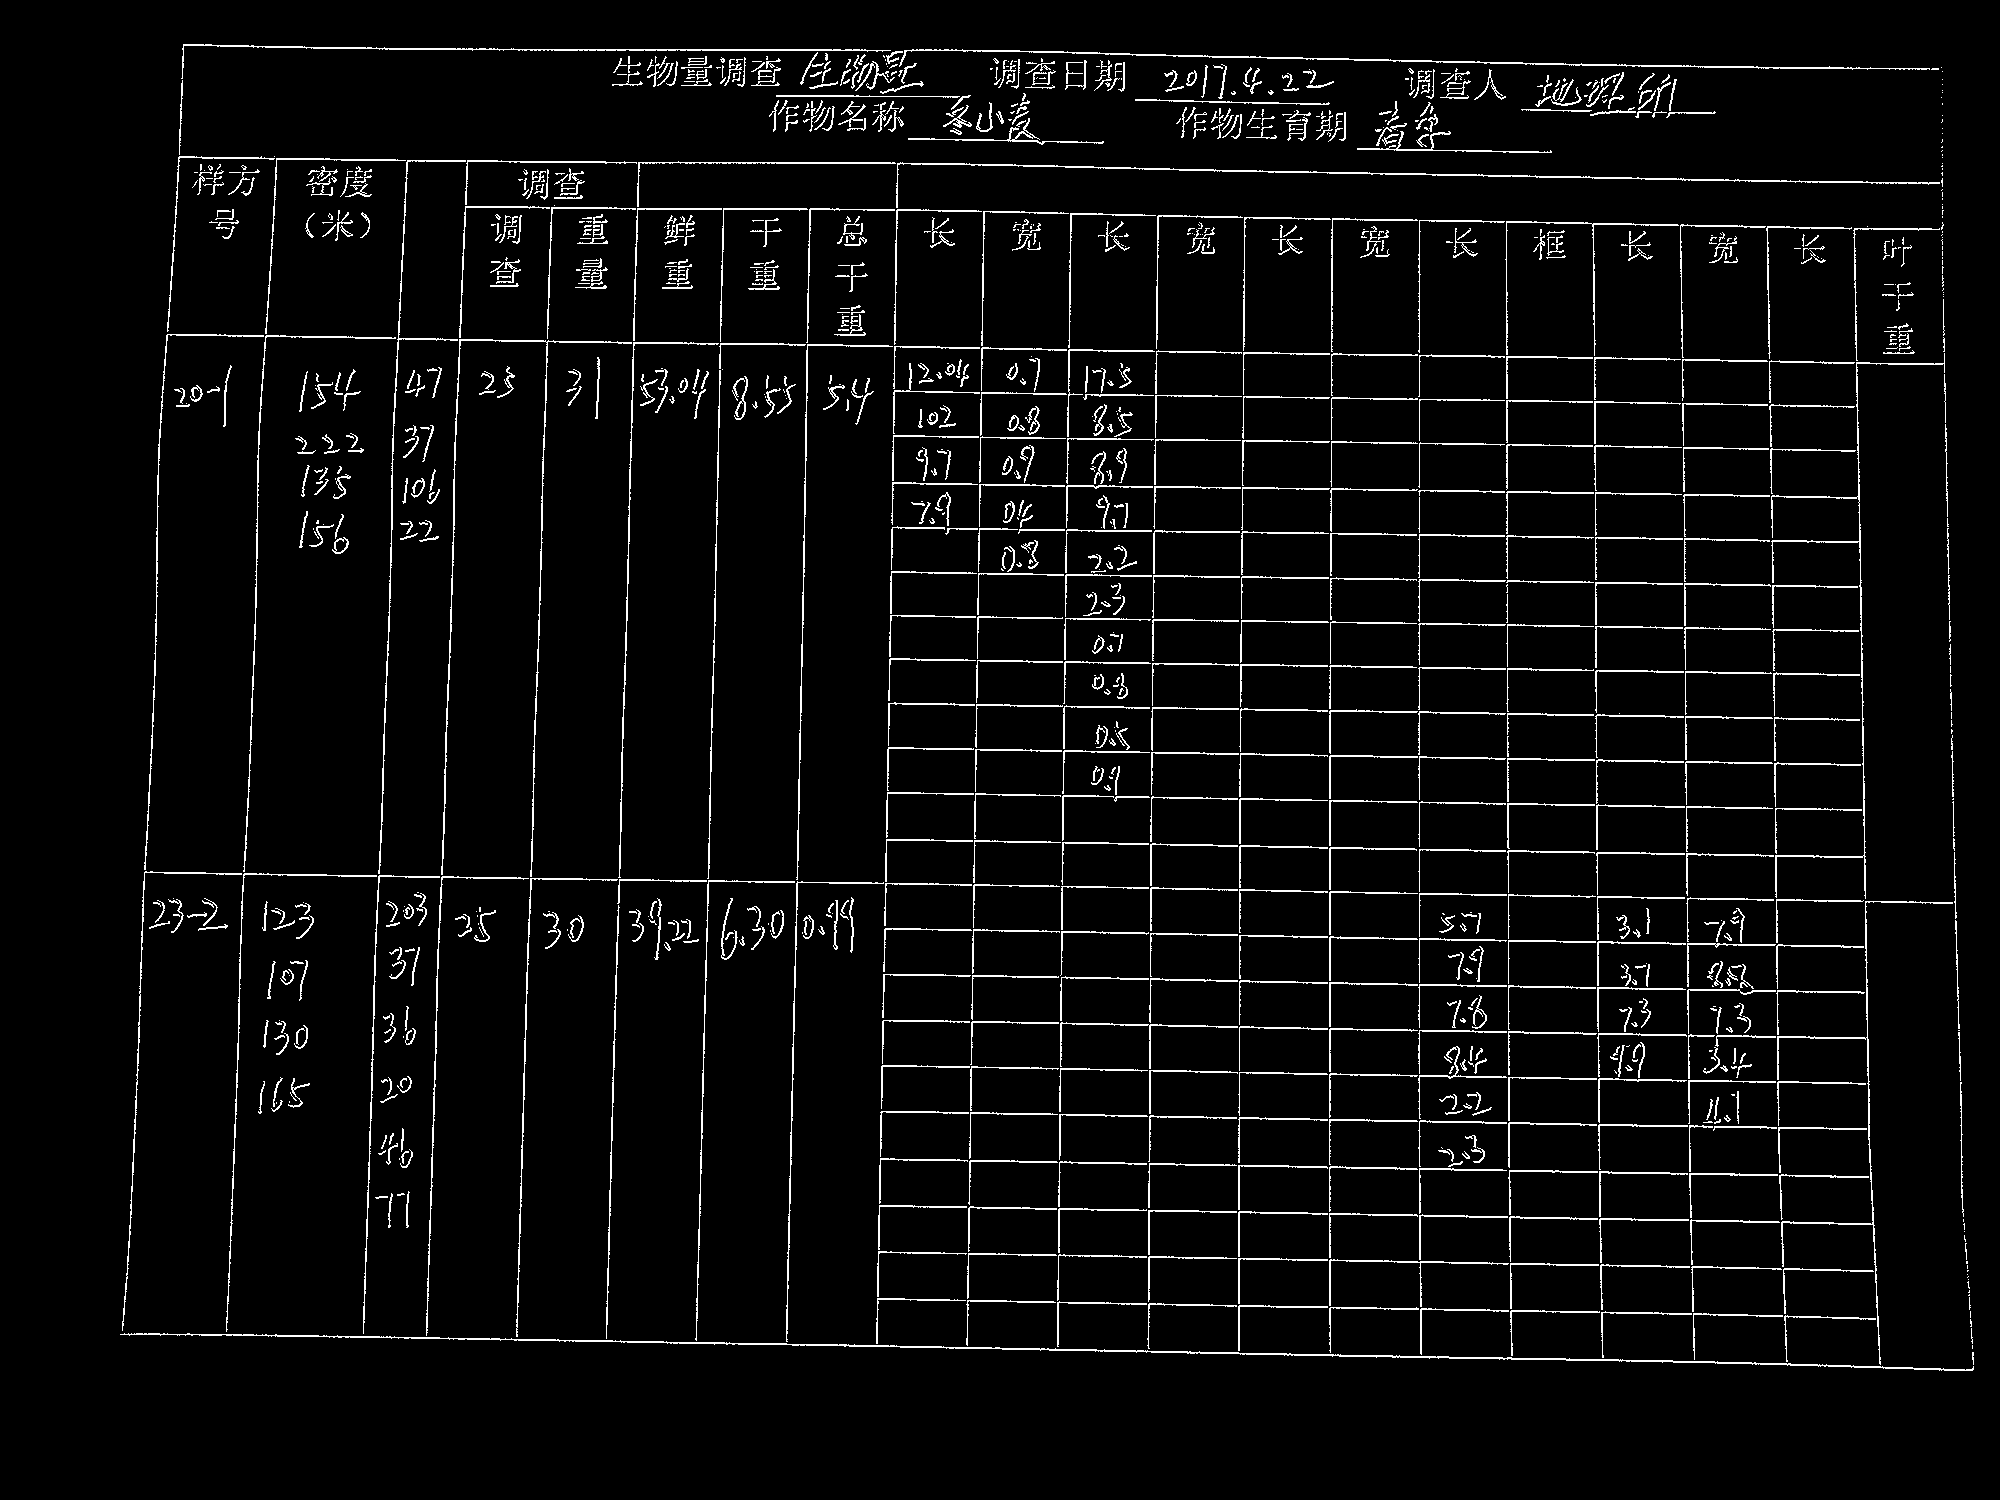 生物量调查 生物量 调查日期 2017.4.22 调查人 地理所
作物名称 冬小麦 作物生育期 春季
样方号 密度（米） 调查
调查 重量 鲜重 干重 总干重 长 宽 长 宽 长 宽 长 框 长 宽 长 叶干重
20-1 154 47 25 31 53.04 8.55 5.4 12.04 0.7 17.5
102 0.8 8.5
222 37 9.7 0.9 8.9
135 106 7.9 0.4 9.7
156 22 0.8 2.2
2.3
0.7
0.8
0.5
0.9
23-2 123 203 25 30 39.22 6.30 0.99 5.7 3.1 7.9
107 37 7.9 3.7 8.8
130 36 7.8 7.3 7.3
8.4 9.9 3.4
165 20 2.2 4.7
46 2.3
77